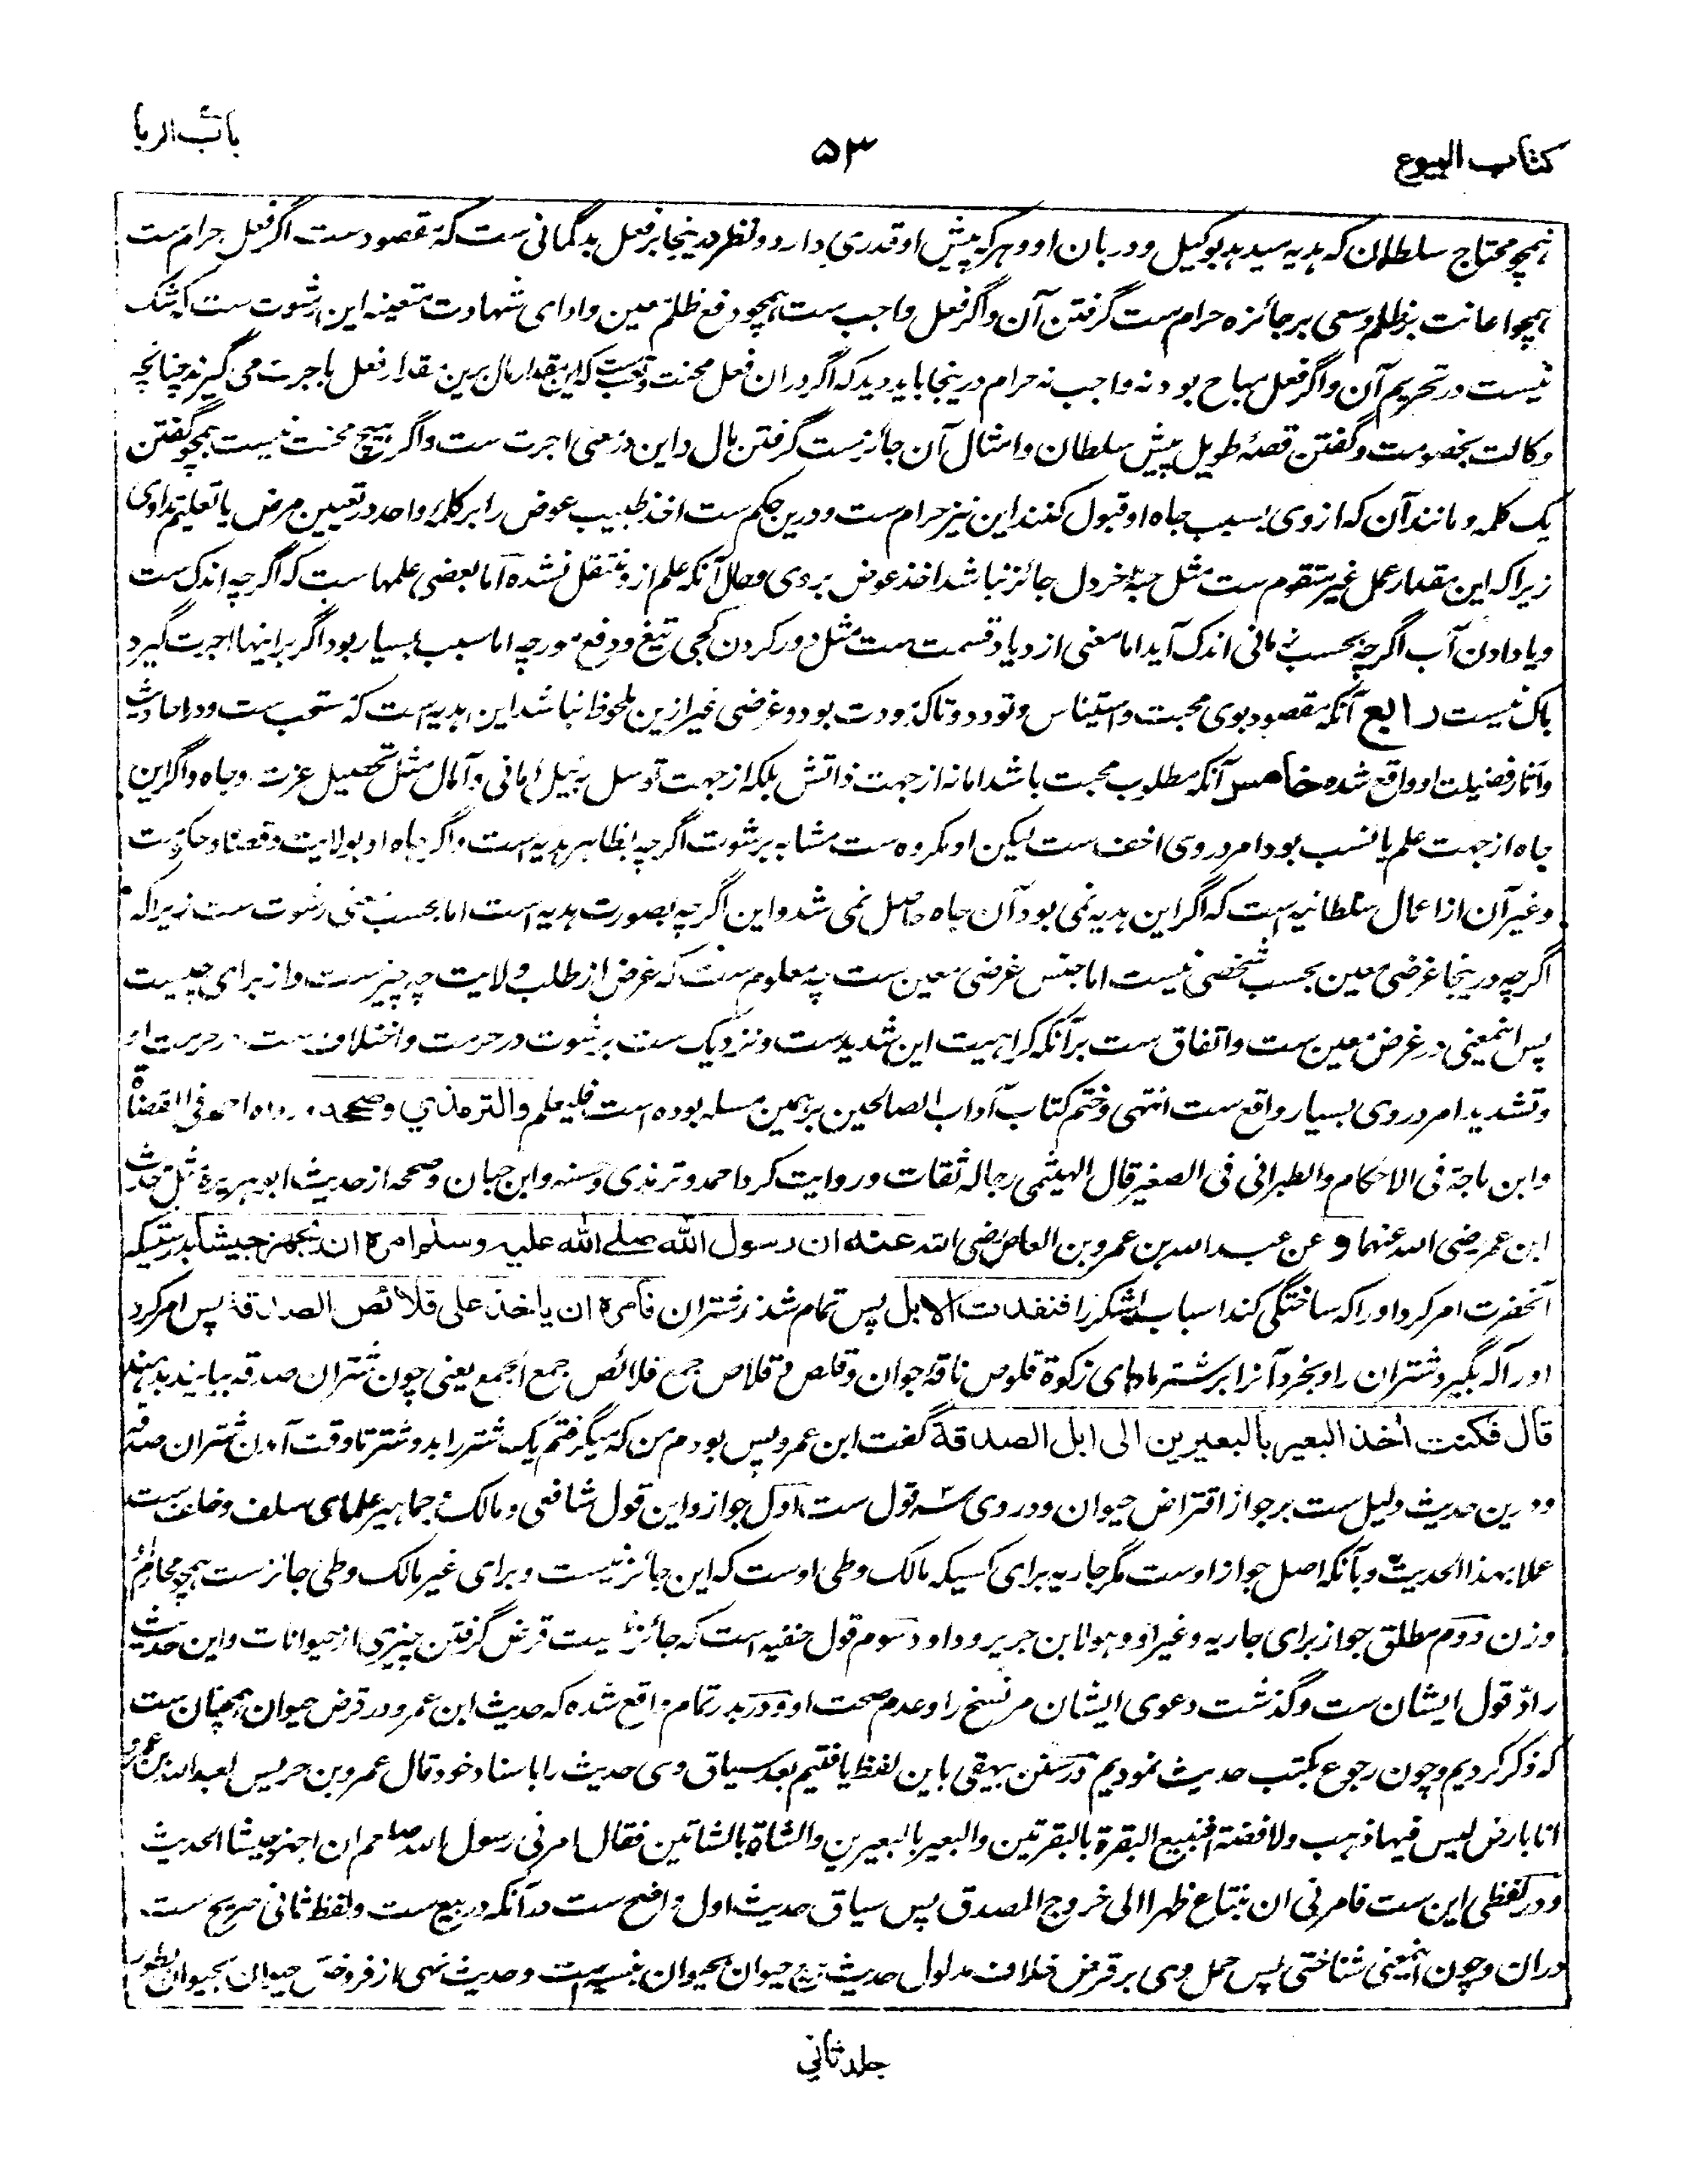 کتاب البیوع
۵۳
باب الربا
همچو محتاج سلطان که هدیه میدهد بوکیل و دربان او و هرکه پیش او قدری دارد و نظر درینجا بر فعل بدگمانی ست که مقصودست اگر فعل حرام ست
همچو اعانت بر ظلم و سعی بر جائزه حرام ست گرفتن آن و اگر فعل واجب ست همچو دفع ظلم معین و ادای شهادت متعینه این رشوت ست که شک
نیست در تحریم آن و اگر فعل مباح بود نه واجب نه حرام درینجا باید دید که اگر دران فعل محنت و تعب ست که این مقدار مال برین مقدار فعل باجرت می گیرند چنانچه
وکالت بخصومت و گفتن قصهٔ طویل پیش سلطان و امثال آن جائزست گرفتن مال و این در معنی اجرت ست و اگر هیچ محنت نیست همچو گفتن
یک کلمه و مانند آن که از وی بسبب جاه او قبول کنند این نیز حرام ست و درین حکم ست اخذ طبیب عوض را بر کلمهٔ واحد در تعیین مرض یا تعلیم تداوی
زیراکه این مقدار عمل غیر متقوم ست مثل حبهٔ خردل جائز نباشد اخذ عوض بر وی و حال آنکه علم ازو منتقل نشده اما بعضی علمها ست که اگرچه اندک ست
و یا دادن آب اگرچه بحسب اندک آید اما معنی ازدیاد قسمت ست مثل دور کردن کجی تیغ و دفع مورچه اما سبب بسیار بود اگر بر اینها اجرت گیرد
باک نیست رابع آنکه مقصود بوی محبت و استیناس و تودد و تاکد مودت بود و غرضی غیر ازین ملحوظ نباشد این هدیه است که مستحب ست و در احادیث
و آثار فضیلت او واقع شده خامس آنکه مطلوب محبت باشد اما نه از جهت ذاتش بلکه از جهت توسل به نیل امانی و آمال مثل تحصیل عزت و جاه و اگر این
جاه از جهت علم یا نسب بود امر در وی اخف ست لیکن او مکروه ست مشابه برشوت اگرچه بظاهر هدیه است و اگر جاه او بولایت و قضا و حکومت
و غیر آن از اعمال سلطانیه است که اگر این هدیه نمی بود آن جاه حاصل نمی شد و این اگرچه بصورت هدیه است اما بحسب معنی رشوت ست زیراکه
اگرچه درینجا غرضی معین بحسب شخصی نیست اما جنس غرضی معین ست چه معلوم ست که غرض از طلب ولایت چه چیزست و از برای چیست
پس اینمعنی در غرض معین ست و اتفاق ست برآنکه کراهیت این شدیدست و نزدیک ست برشوت در حرمت و اختلاف ست در حرمت او
و تشدید امر در وی بسیار واقع ست انتهی و ختم کتاب آداب الصالحین بر همین مسله بوده است فلیعلم والترمذی وصححه رواه احمد فی القضاة
وابن ماجة فی الاحکام والطبرانی فی الصغیر قال الهیثمی رجاله ثقات و روایت کرد احمد و ترمذی و حسنه وابن حبان و صححه از حدیث ابو هریره مثل حدیث
ابن عمر رضی الله عنهما و عن عبد الله بن عمرو بن العاص رضی الله عنه ان رسول الله صلی الله علیه وسلم امره ان یجهز جیشا بدرستیکه
آنحضرت امر کرد او را که ساختگی کند اسباب لشکر را فنفدت الابل پس تمام شد زشتران فامره ان یاخذ علی قلائص الصدقة پس امر کرد
او را که بگیرد شتران را و بخرد آنرا بر شتر مادهای زکوة قلوص ناقهٔ جوان و قلص و قلاص جمع قلائص جمع الجمع یعنی چون شتران صدقه بیایند بدهند
قال فکنت اٰخذ البعیر بالبعیرین الی ابل الصدقة گفت ابن عمرو پس بودم من که میگرفتم یک شتر را بدو شتر تا وقت آمدن شتران صدقه
و درین حدیث دلیل ست بر جواز اقتراض حیوان و در وی سه قول ست اول جواز و این قول شافعی و مالک و جماهیر علمای سلف و خلف ست
عملا بهذا الحدیث و بآنکه اصل جواز اوست مگر جاریه برای کسیکه مالک وطی اوست که این جائز نیست و برای غیر مالک وطی جائز ست همچو محارم
و زن دوم مطلق جواز برای جاریه و غیر او و هولا بن جریر و داود سوم قول حنفیه است که جائز نیست قرض گرفتن چیزی از حیوانات و این حدیث
رادّ قول ایشان ست و گذشت دعوی ایشان مر نسخ را و عدم صحت او و در بدر تمام واقع شده که حدیث ابن عمرو در قرض حیوان همچنان ست
که ذکر کردیم و چون رجوع بکتب حدیث نمودیم در سنن بیهقی باین لفظ یافتیم بعد سیاق وی حدیث را باسناد خود قال عمرو بن حریس لعبد الله بن عمرو
انا بارض لیس فیها ذهب ولا فضة افنبیع البقرة بالبقرتین والبعیر بالبعیرین والشاة بالشاتین فقال امرنی رسول الله صلعم ان اجهز جیشا الحدیث
و در لفظی این ست فامرنی ان نبتاع ظهرا الی خروج المصدق پس سیاق حدیث اول واضح ست درآنکه در بیع ست و لفظ ثانی صریح ست
دران و چون اینمعنی شناختی پس حمل وی بر قرض خلاف مدلول حدیث بیع حیوان بحیوان نسیه است و حدیث نهی از قروض حیوان بحیوان بطور
جلد ثانی